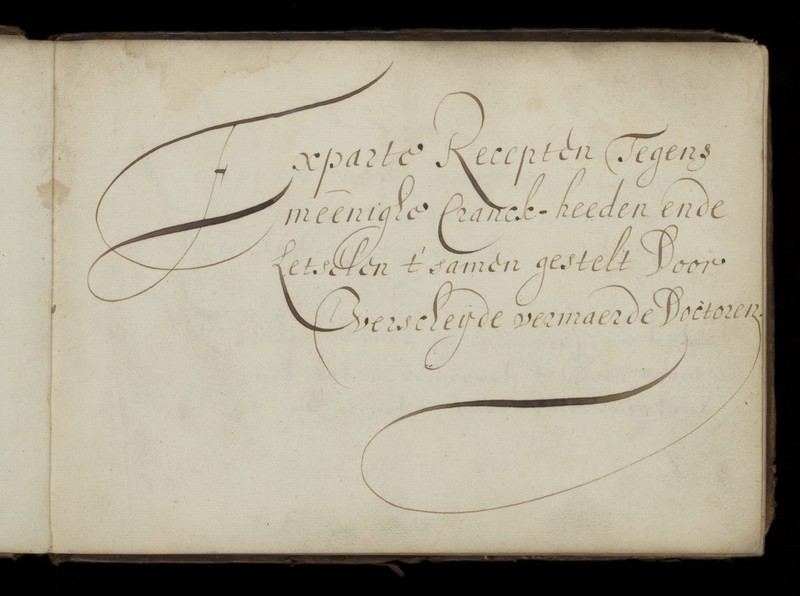 Experte Recepten Tegens
mēenighe Cranck-heeden ende
Letselen t'samen gestelt Door
Verscheyde vermaerde Doctoren.